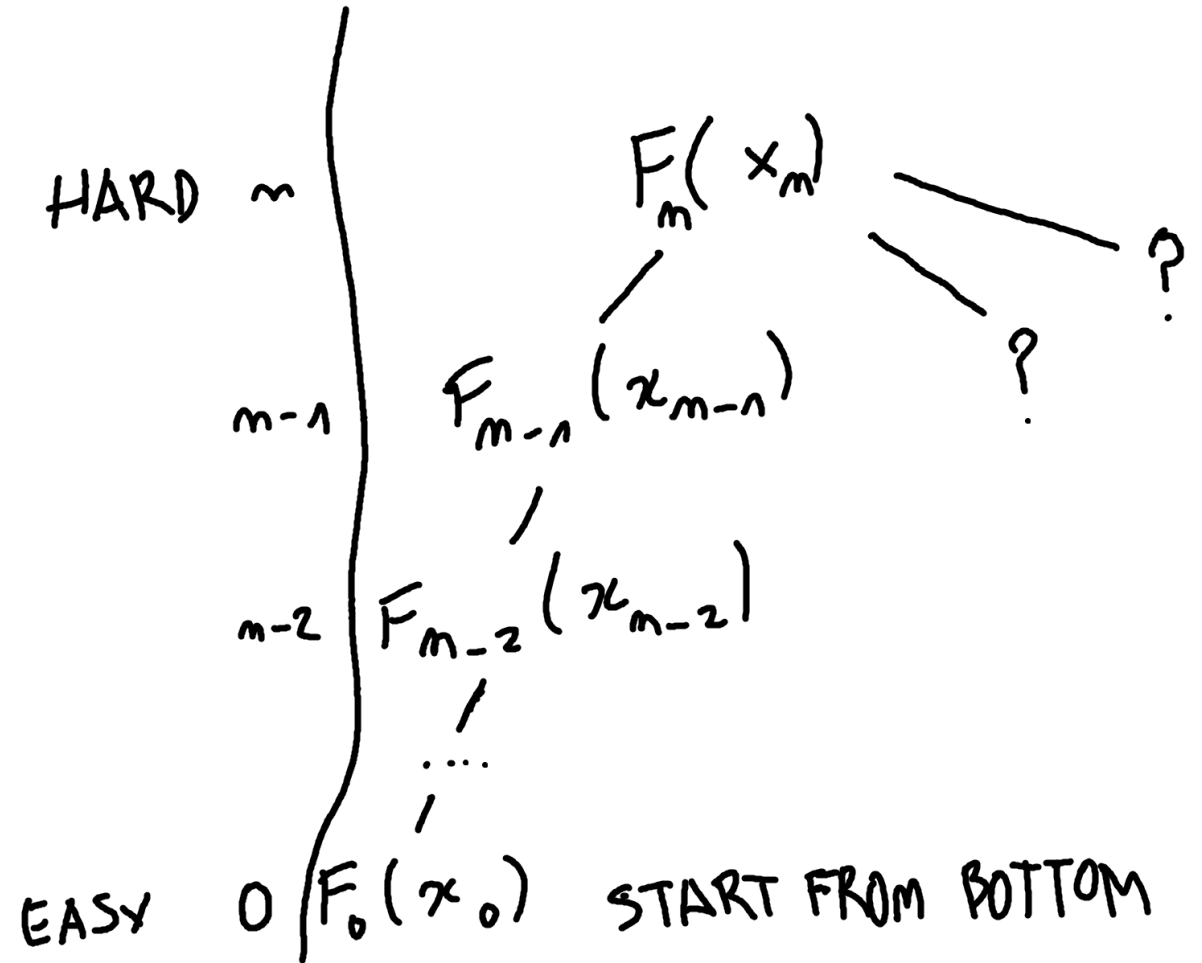 HARD n F_n(x_n)
?
?
n-1 F_{n-1}(x_{n-1})
n-2 F_{n-2}(x_{n-2})
....
EASY 0 F_0(x_0) START FROM BOTTOM